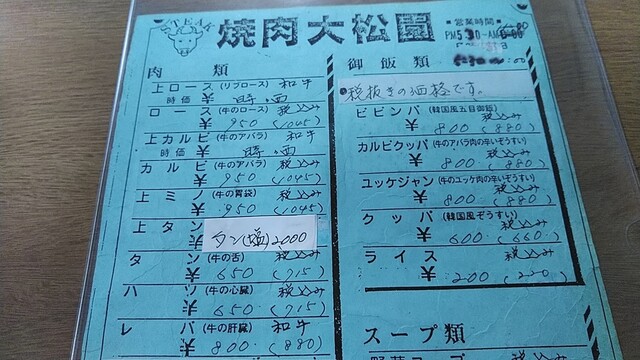 STEAK
焼肉大松園
営業時間
PM5:30-AM
肉 類
上ロース (リブロース) 和牛
時価 ¥ 時価
ロース (牛のロース) 税込み
¥ 950 (1045)
上カルビ (牛のアバラ) 和牛
時価 ¥ 時価
カルビ (牛のアバラ) 税込み
¥ 950 (1045)
上ミノ (牛の胃袋) 税込み
¥ 950 (1045)
上タン
タン(塩) 2,000
¥
タン (牛の舌) 税込み
¥ 650 (715)
ハツ (牛の心臓) 税込み
¥ 650 (715)
レバ (牛の肝臓) 和牛
¥ 800 (880)
御飯類
●税抜きの価格です。
ビビンバ (韓国風五目御飯) 税込み
¥ 800 (880)
カルビクッパ (牛のアバラ肉の辛いぞうすい) 税込み
¥ 800 (880)
ユッケジャン (牛のユッケ肉の辛いぞうすい) 税込み
¥ 800 (880)
クッパ (韓国風ぞうすい) 税込み
¥ 600 (660)
ライス 税込み
¥ 200 (220)
スープ類
野菜スープ 税込み